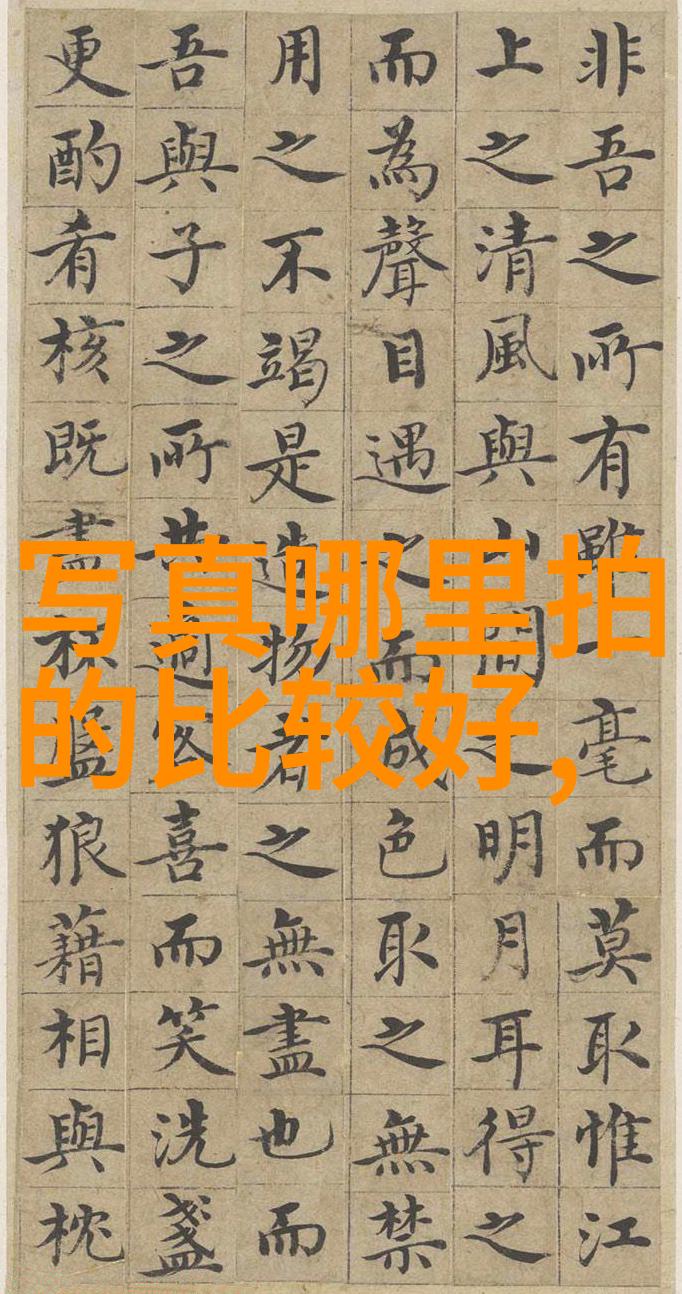 非吾之所有雖一毫而莫取惟江
上之清風與山間之明月耳得之
而為聲目遇之而成色取之無禁
用之不竭是造物者之無盡也而
吾與子之所共適客喜而笑洗盞
更酌肴核既盡杯盤狼藉相與枕
写真哪里拍
的比较好,